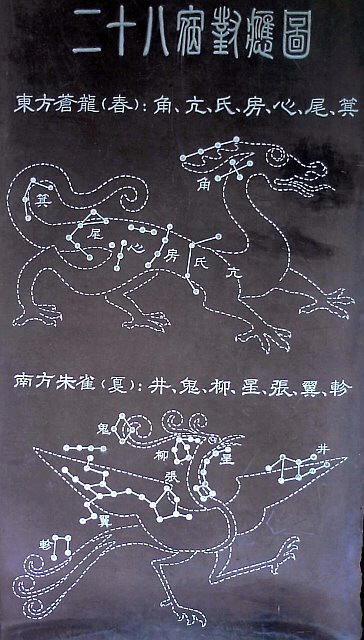 二十八宿對應圖
東方蒼龍（春）：角、亢、氐、房、心、尾、箕
角
箕
尾
心
房
氐
亢
南方朱雀（夏）：井、鬼、柳、星、張、翼、軫
鬼
柳
星
井
張
翼
軫